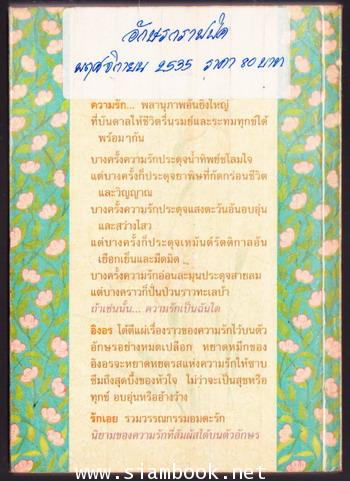 อักษราราพฝัด
พฤศจิกายน 2535 ราคา 80 บาท
ความรัก... พลานุภาพอันยิ่งใหญ่
ที่บันดาลให้ชีวิตรื่นรมย์และระทมทุกข์ได้
พร้อมๆกัน
บางครั้งความรักประดุจน้ำทิพย์ชโลมใจ
แต่บางครั้งก็ประดุจยาพิษที่กัดกร่อนชีวิต
และวิญญาณ
บางครั้งความรักประดุจแสงตะวันอันอบอุ่น
และสว่างไสว
แต่บางครั้งก็ประดุจเหมันต์รัตติกาลอัน
เยือกเย็นและมืดมิด ...
บางครั้งความรักอ่อนละมุนประดุจสายลม
แต่บางคราวก็ปั่นป่วนราวทะเลบ้า
ถ้าเช่นนั้น... ความรักเป็นฉันใด
อิงอร ได้ตีแผ่เรื่องราวของความรักไว้บนตัว
อักษรอย่างหมดเปลือก หยาดหมึกของ
อิงอรจะหยาดหยดรสแห่งความรักให้ซาบ
ซึมถึงสุดบึ้งของหัวใจ ไม่ว่าจะเป็นสุขหรือ
ทุกข์ อบอุ่นหรืออ้างว้าง
รักเอย รวมวรรณกรรมอมตะรัก
นิยามของความรักที่สัมผัสได้บนตัวอักษร
www.siambook.net